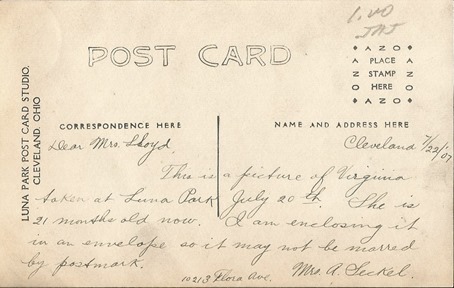 1.00
JAJ
POST CARD
AZO
PLACE
STAMP
HERE
AZO
LUNA PARK POST CARD STUDIO.
CLEVELAND, OHIO
CORRESPONDENCE HERE
NAME AND ADDRESS HERE
Cleveland 7/22/07
Dear Mrs. Lloyd.
This is a picture of Virginia
taken at Luna Park July 20th. She is
21 months old now. I am enclosing it
in an envelope so it may not be marred
by postmark.
10213 Flora Ave. Mrs. A. Seckel.